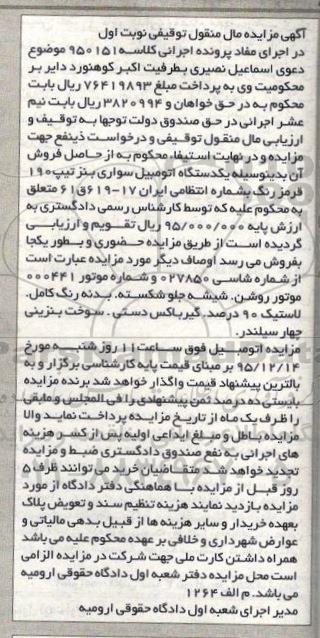 آگهی مزایده مال منقول توقیفی نوبت اول
در اجرای مفاد پرونده اجرائی کلاسه ۹۵۰۱۵۱ موضوع
دعوی اسماعیل نصیری بطرفیت اکبر کوهنورد دایر بر
محکومیت وی به پرداخت مبلغ ۷۶۴۱۹۸۹۳ ریال بابت
محکوم به در حق خواهان و ۳۸۲۰۹۹۴ ریال بابت نیم
عشر اجرائی در حق صندوق دولت توجها به توقیف و
ارزیابی مال منقول توقیفی و درخواست ذینفع جهت
مزایده و در نهایت استیفاء محکوم به از حاصل فروش
آن بدینوسیله یکدستگاه اتومبیل سواری بنز تیپ۱۹۰
قرمز رنگ بشماره انتظامی ایران ۱۷-۶۱۹ق۶۱ متعلق
به محکوم علیه که توسط کارشناس رسمی دادگستری به
ارزش پایه ۹۵/۰۰۰/۰۰۰ ریال تقویم و ارزیابی
گردیده است از طریق مزایده حضوری و بطور یکجا
بفروش می رسد اوصاف دیگر مورد مزایده عبارت است
از شماره شاسی ۰۲۷۸۵۰ و شماره موتور ۰۰۰۴۴۱
موتور روشن. شیشه جلو شکسته. بدنه رنگ کامل.
لاستیک ۹۰ درصد. گیرباکس دستی . سوخت بنزینی
چهار سیلندر.
مزایده اتومبیل فوق ساعت۱۱ روز شنبه مورخ
۹۵/۱۲/۱۴ بر مبنای قیمت پایه کارشناسی برگزار و به
بالترین پیشنهاد قیمت واگذار خواهد شد برنده مزایده
بایستی ده درصد ثمن پیشنهادی را فی المجلس و مابقی
را ظرف یک ماه از تاریخ مزایده پرداخت نماید والا
مزایده باطل و مبلغ ایداعی اولیه پس از کسر هزینه
های اجرائی به نفع صندوق دادگستری ضبط و مزایده
تجدید خواهد شد متقاضیان خرید می توانند ظرف ۵
روز قبل از مزایده با هماهنگی دفتر دادگاه از مورد
مزایده بازدید نمایند هزینه تنظیم سند و تعویض پلاک
بعهده خریدار و سایر هزینه ها از قبیل بدهی مالیاتی و
عوارض شهرداری و خلافی بر عهده محکوم علیه می باشد
همراه داشتن کارت ملی جهت شرکت در مزایده الزامی
است محل مزایده دفتر شعبه اول دادگاه حقوقی ارومیه
می باشد. م الف ۱۲۶۴
مدیر اجرای شعبه اول دادگاه حقوقی ارومیه